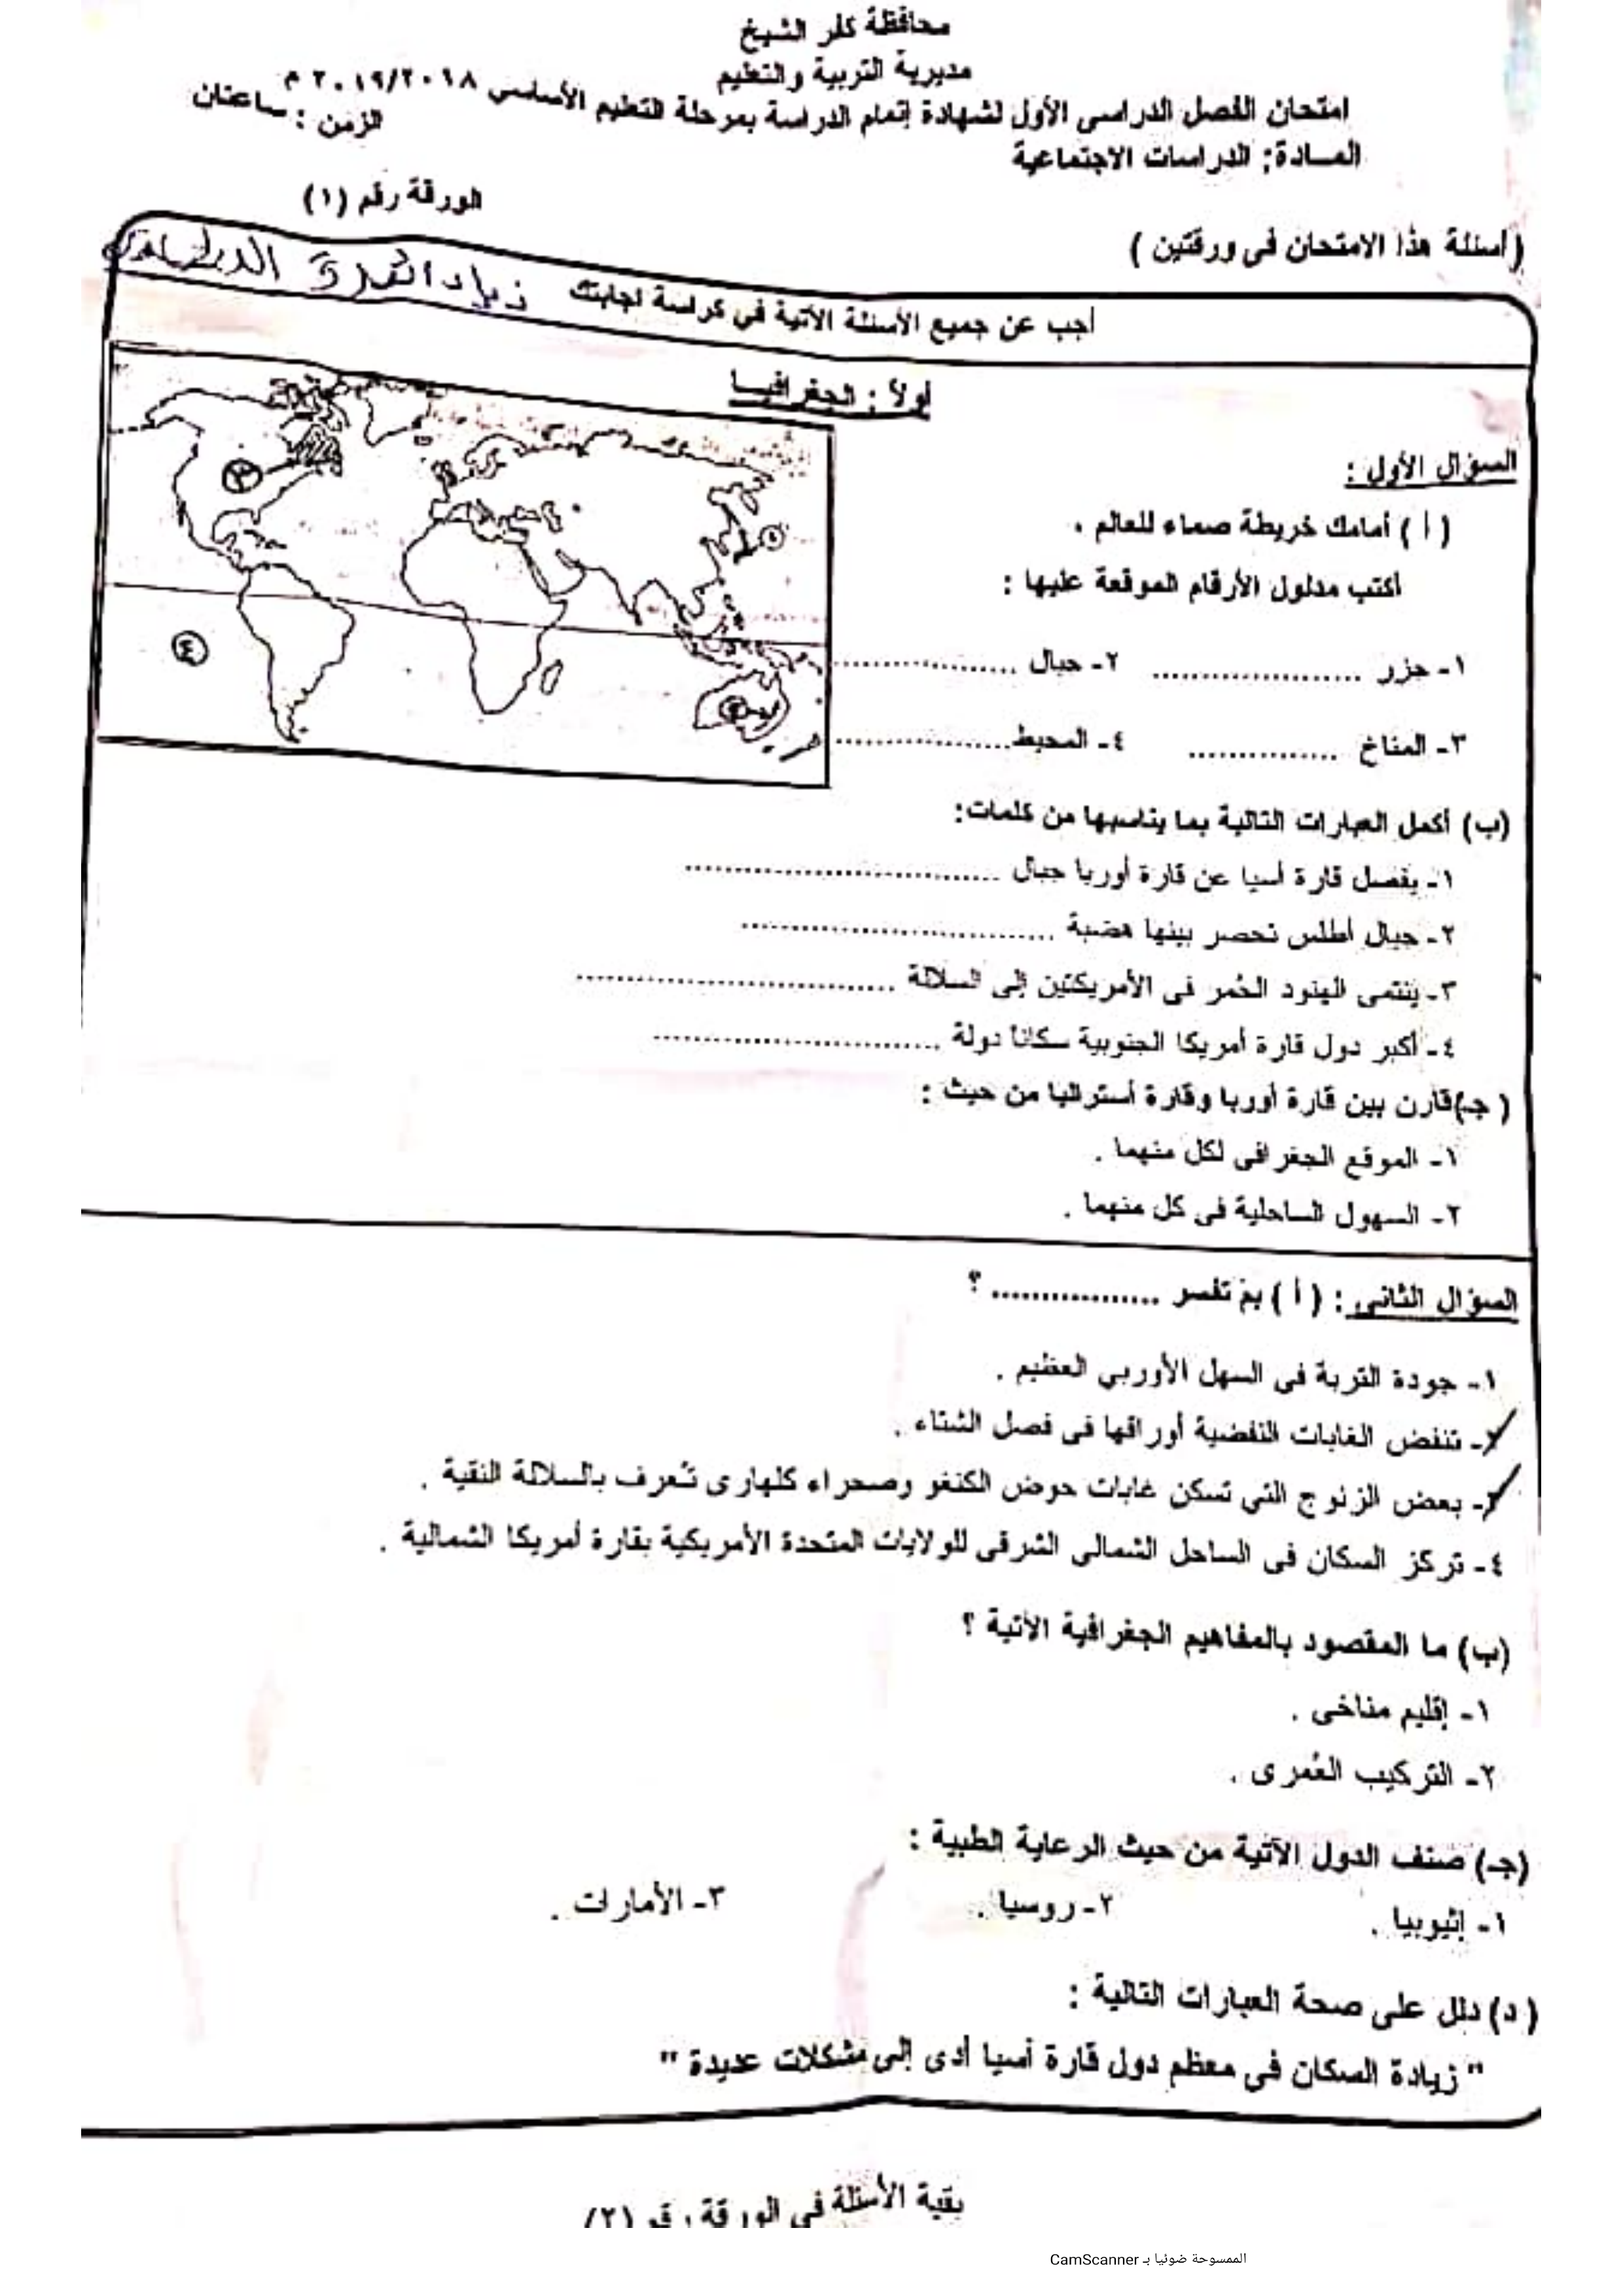 محافظة كفر الشيخ
مديرية التربية والتعليم
امتحان الفصل الدراسى الأول لشهادة إتمام الدراسة بمرحلة التعليم الأساسي ٢٠١٩/٢٠١٨ م
المادة: الدراسات الاجتماعية
الزمن : ساعتان
(أسئلة هذا الامتحان فى ورقتين )
الورقة رقم (١)
أجب عن جميع الأسئلة الآتية في كراسة اجابتك
أولاً : الجغرافيا
السؤال الأول :
( أ ) أمامك خريطة صماء للعالم .
أكتب مدلول الأرقام الموقعة عليها :
١- جزر .................... ٢- جبال ....................
٣- المناخ ............... ٤- المحيط..................
(ب) أكمل العبارات التالية بما يناسبها من كلمات:
١- يفصل قارة أسيا عن قارة أوربا جبال ..............................
٢- جبال أطلس تحصر بينها هضبة ..............................
٣- ينتمى الهنود الحُمر فى الأمريكتين إلى السلالة ..............................
٤- أكبر دول قارة أمريكا الجنوبية سكاناً دولة ..............................
( جـ)قارن بين قارة أوربا وقارة أستراليا من حيث :
١- الموقع الجغرافى لكل منهما .
٢- السهول الساحلية فى كل منهما .
السؤال الثانى : ( أ ) بم تفسر ................. ؟
١- جودة التربة فى السهل الأوربي العظيم .
٢- تنفض الغابات النفضية أوراقها فى فصل الشتاء .
٣- بعض الزنوج التي تسكن غابات حوض الكنغو وصحراء كلهارى تُعرف بالسلالة النقية .
٤- تركز السكان فى الساحل الشمالى الشرقى للولايات المتحدة الأمريكية بقارة أمريكا الشمالية .
(ب) ما المقصود بالمفاهيم الجغرافية الآتية ؟
١- إقليم مناخى .
٢- التركيب العُمرى .
(جـ) صنف الدول الآتية من حيث الرعاية الطبية :
١- إثيوبيا . ٢- روسيا . ٣- الأمارات .
( د) دلل على صحة العبارات التالية :
" زيادة السكان فى معظم دول قارة أسيا أدى إلى مشكلات عديدة "
بقية الأسئلة فى الورقة رقم (٢)
الممسوحة ضوئيا بـ CamScanner